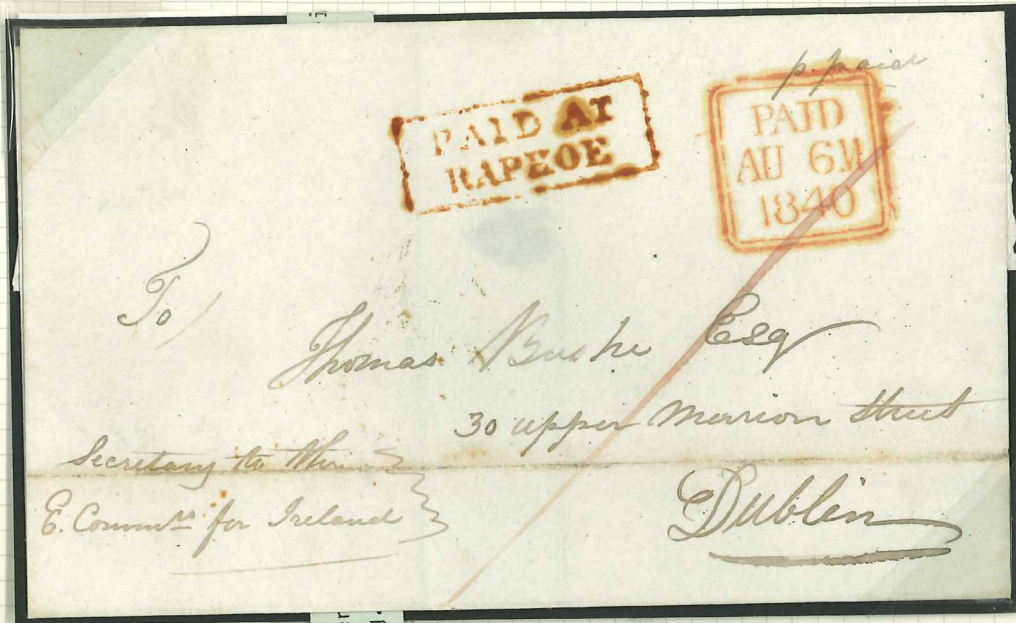 p. paid
PAID AT
RAPHOE
PAID
AU 6M
1840
To
Thomas Bushe Esq
30 upper Merrion Street
Secretary to the
E. Comm.rs for Ireland
Dublin